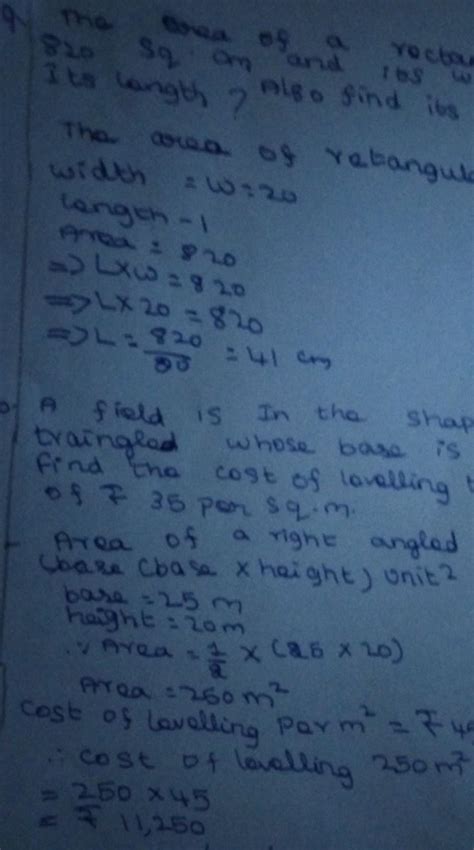 9 The area of a rectan
820 sq cm and its w
Its Length? Also find its
The area of retangula
width = W = 20
Length - l
Area = 820
=> L x W = 820
=> L x 20 = 820
=> L = 820/20 = 41 cm
A field is In the shap
traingled whose base is
find the cost of lovelling t
of ₹ 35 per sq.m.
Area of a right angled
(base (base x height) unit²
base = 25 m
height = 20m
∵ Area = 1/2 x (25 x 20)
Area = 250 m²
Cost of Lavelling Par m² = ₹ 45
∴ cost of lavelling 250m²
= 250 x 45
= ₹ 11,250